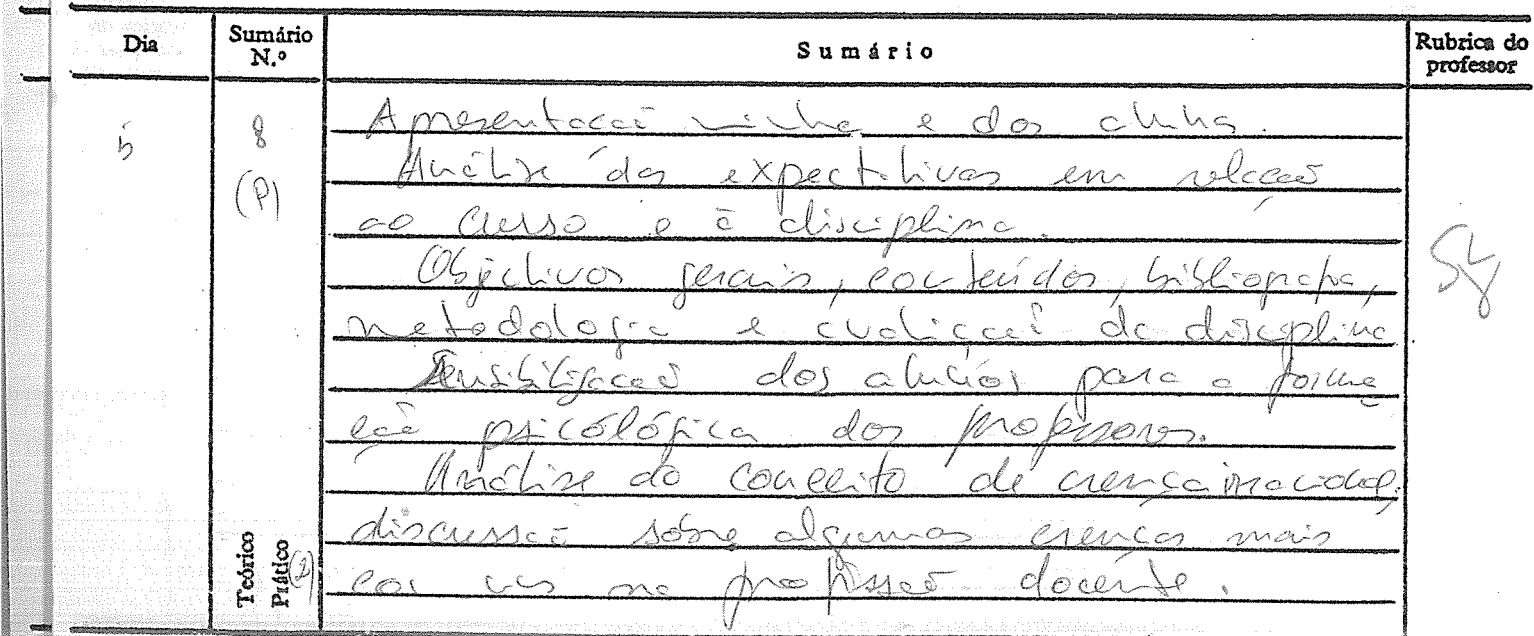 Dia
Sumário N.º
Sumário
Rubrica do professor
5
8
(P)
Apresentação minha e dos alunos.
Análise das expectativas em relação
ao curso e à disciplina.
Objectivos gerais, conteúdos, bibliografia,
metodologia e avaliação da disciplina
Sensibilização dos alunos para a forma
ção psicológica dos professores.
Análise do conceito de crença irracional,
discussão sobre algumas crenças mais
comuns na profissão docente.
Teórico
Prático (2)